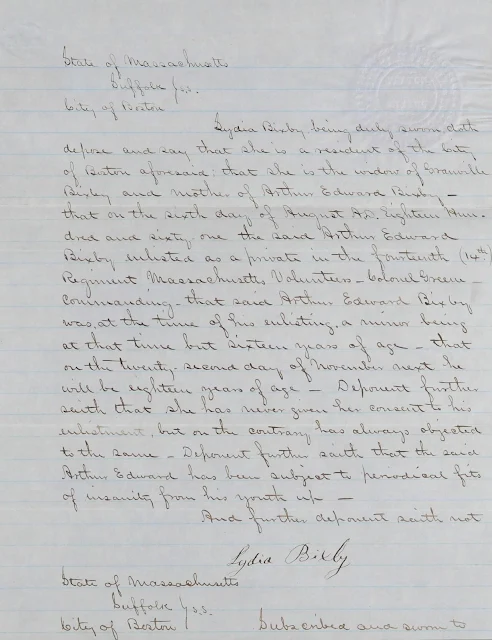 State of Massachusetts
Suffolk ss.
City of Boston
Lydia Bixby being duly sworn doth
depose and say that she is a resident of the City
of Boston aforesaid: that she is the widow of Cromwell
Bixby and mother of Arthur Edward Bixby –
that on the sixth day of August A.D. Eighteen Hun-
dred and sixty-one the said Arthur Edward
Bixby enlisted as a private in the fourteenth (14th)
Regiment Massachusetts Volunteers – Colonel Greene –
commanding – that said Arthur Edward Bixby
was, at the time of his enlisting, a minor being
at that time but sixteen years of age – that
on the twenty-second day of November next he
will be eighteen years of age – Deponent further
saith that she has never given her consent to his
enlistment, but on the contrary has always objected
to the same – Deponent further saith that the said
Arthur Edward has been subject to periodical fits
of insanity from his youth up –
And further deponent saith not
Lydia Bixby
State of Massachusetts
Suffolk ss.
City of Boston Subscribed and sworn to